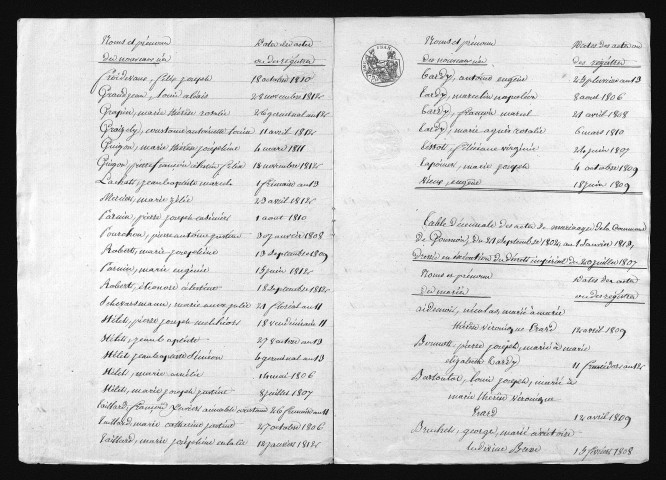 Noms et prénoms Dates des actes
des nouveaux nés ou des registres
Froidevaux, félix joseph 18 octobre 1810
Grandjean, louis alexis 28 novembre 1812
Grapin, marie thérèse rosalie 26 germinal an 12
Graizely, constance antoinette louise 11 avril 1812
Guigon, marie thérèse joséphine 4 mars 1811
Guigon, pierre françois célestin félix 18 novembre 1812
Lachat, jean baptiste marcel 1 frimaire an 13
Mercier, marie zélie 29 avril 1812
Parain, pierre joseph casimir 1 août 1810
Pourchon, pierre antoine justin 30 janvier 1808
Robert, marie joséphine 13 septembre 1809
marie eugénie 15 juin 1812
Robert, éléonore célestine 18 septembre 1812
marie anne julie 21 floréal an 11
Hélet, pierre joseph melchior 18 vendémiaire 11
Hélet, jean baptiste an 13
Hélet, jean baptiste Siméon 6 germinal an 13
Hélet, marie aurélie 14 mai 1806
Hélet, marie joseph justine 8 juillet 1807
Taillard, françois Xavier aimable constant 26 frimaire an 11
Taillard, marie catherine justine 27 octobre 1806
Taillard, marie joséphine eulalie 12 janvier 1812
Noms et prénoms Dates des actes ou
des nouveaux nés des registres
Tardy, antoine eugène 23 pluviose an 13
Tardy, marcelin napoléon 8 août 1806
Tardy, françois marcel 21 avril 1808
Tardy, marie agnès rosalie 6 mars 1810
féliciane virginie 24 juin 1807
marie joseph 4 octobre 1809
Vieux, eugène 18 juin 1809
Table décennale des actes de mariage de la Commune
de du 21 septembre 1802, au 1 Janvier 1813,
Dressée en exécution du décret impérial du 20 juillet 1807
Noms et prénoms Dates des actes
des mariés ou des registres
nicolas, marié à marie
thérèse véronique Evard 12 avril 1809
Bonnot, pierre joseph, marié à marie
elizabeth Tardy 11 fructidor an 12
louis joseph, marié à
marie thérèse véronique
Evard 12 avril 1809
Bruchet, george, marié à victoire
ludivine 15 février 1808